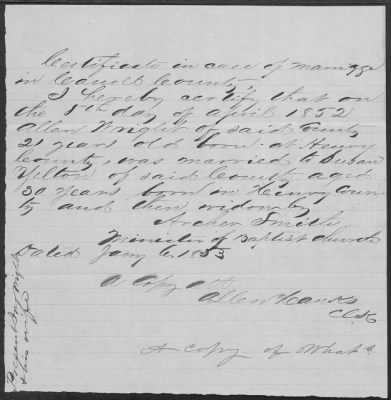 Certificate in case of marriage
in Carroll County.
I hereby certify that on
the 8th day of april 1852
Allen Wright of said County
21 years old born at Henry
County, was married to Susan
Yelton of said County aged
30 years born in Henry Coun
ty and then widow by
Archer Smith
Minister of Baptist Church
Dated Jany 6. 1853
A Copy att
Allen Hanks
Clk
A copy of What
his wife